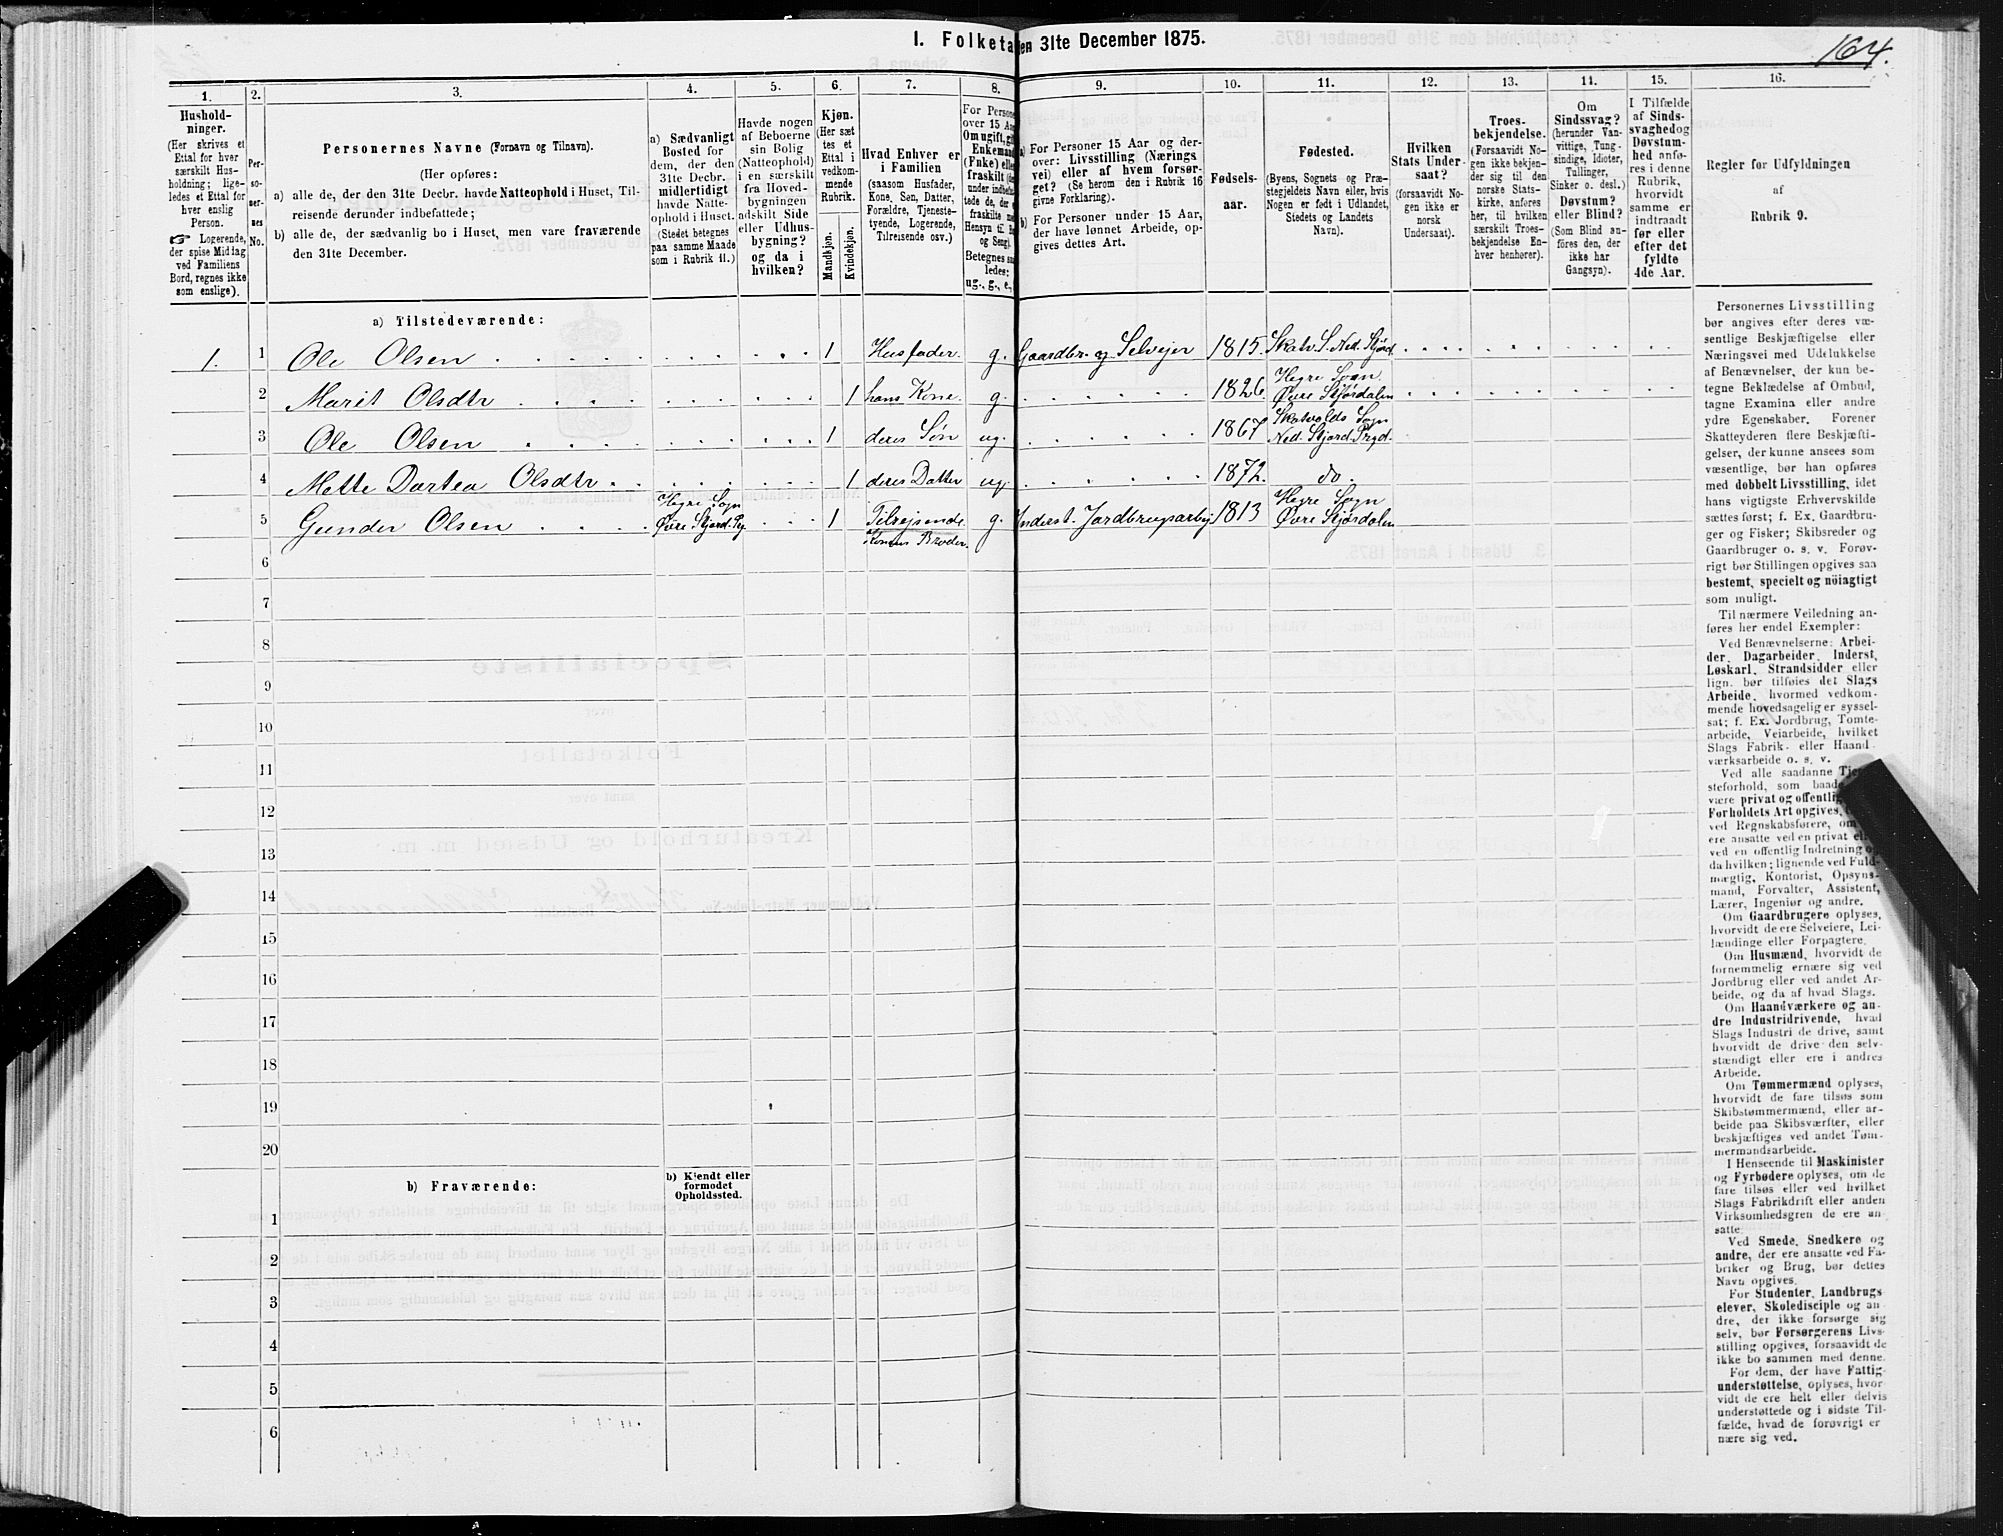 I. Folketa en 31te December 1875.
164.
1. 2. 3. 4. 5. 6. 7. 8. 9. 10. 11. 12. 13. 14. 15. 16.
Hushold-
ninger.
(Her skrives et
Ettal for hver
særskilt Hus-
holdning; lige-
ledes et Ettal for
hver enslig
Person.
☞ Logerende,
der spise Middag
ved Familiens
Bord, regnes ikke
som enslige).
Per-
so-
ner-
nes
No.
Personernes Navne (Fornavn og Tilnavn).
(Her opføres:
a) alle de, der den 31te Decbr. havde Natteophold i Huset, Til-
reisende derunder indbefattede;
b) alle de, der sædvanlig bo i Huset, men vare fraværende
den 31te December.
a) Sædvanligt
Bosted for
dem, der den
31te Decbr.
midlertidigt
havde Natte-
ophold i Huset.
(Stedet betegnes
paa samme Maade
som i Rubrik 11.)
Havde nogen
af Beboerne
sin Bolig
(Natteophold)
i en særskilt
fra Hoved-
bygningen
adskilt Side
eller Udhus-
bygning?
og da i
hvilken?
Kjøn.
(Her sæt
tes et
Ettal i
vedkom-
mende
Rubrik.
Mandkjøn.
Kvindekjøn.
Hvad Enhver er
i Familien
(saasom Husfader,
Kone, Søn, Datter,
Forældre, Tjeneste-
tyende, Logerende,
Tilreisende osv.)
For Persone
over 15 Aa
Om ugift, gi
Enkemand
(Enke) elle
fraskilt (de
under indbefat-
tede de, der
fraskilte
Hensyn til
og Seng).
Betegnes saa
ledes:
ug., g., e.,
a) For Personer 15 Aar og der-
over: Livsstilling (Nærings
vei) eller af hvem forsør-
get? (Se herom den i Rubrik 16
givne Forklaring).
b) For Personer under 15 Aar,
der have lønnet Arbeide, op-
gives dettes Art.
Fødsels-
aar.
Fødested.
(Byens, Sognets og Præ-
stegjeldets Navn eller, hvis
Nogen er født i Udlandet,
Stedets og Landets
Navn).
Hvilken
Stats Under-
saat?
(forsaavidt No-
gen ikke er
norsk
Undersaat).
Troes-
bekjendelse.
(Forsaavidt No-
gen ikke bekjen-
der sig til den
norske Stats-
kirke, anføres
her, til hvilken
særskilt Troes-
bekjendelse En-
hver henhører).
Om
Sindssvag?
(herunder Van-
vittige, Tung-
sindige, Idioter,
Tullinger,
Sinker o. desl.)
Døvstum?
eller Blind?
(Som Blind an-
føres den, der
ikke har
Gangsyn).
I Tilfælde
af Sinds-
svaghed og
Døvstum-
hed anfø-
res i denne
Rubrik,
hvorvidt
samme er
indtraadt
før eller
efter det
fyldte
4de Aar.
Regler for Udfyldningen
af
Rubrik 9.
a) Tilstedeværende:
1. 1 Ole Olsen 1 Husfader. g. Gaardbr. og Selveier 1815. Skatv. S. Ned. Stjørd.
2 Marit Olsdtr 1 hans Kone. g. 1826. Hegre Sogn Øvre Stjørdalen
3 Ole Olsen 1 deres Søn ug. 1867 Skatvolds Sogn Ned. Stjørd. Prgd.
4 Mette Dortea Olsdtr. 1 deres Datter ug. 1872. do.
5 Gunder Olsen Hegre Sogn Øvre Stjord. Pg 1 Tilrejsende. Konens Broder. g. Inderst. Jordbrugsarbej 1813 Hegre Sogn Øvre Stjørdalen
6
7
8
9
10
11
12
13
14
15
16
17
18
19
20
b) Fraværende:
b) Kjendt eller
formodet
Opholdssted.
1
2
3
4
5
6
Personernes Livsstilling
bør angives efter deres væ-
sentlige Beskjæftigelse eller
Næringsvei med Udelukkelse
af Benævnelser, der kun be-
tegne Beklædelse af Ombud,
tagne Examina eller andre
ydre Egenskaber. Forener
Skatteyderen flere Beskjæfti-
gelser, der kunne ansees som
væsentlige, bør han opføres
med dobbelt Livsstilling, idet
hans vigtigste Erhvervskilde
sættes først; f. Ex. Gaardbru-
ger og Fisker; Skibsreder og
Gaardbruger o. s. v. Forøv-
rigt bør Stillingen opgives saa
bestemt, specielt og nöiagtigt
som muligt.
Til nærmere Veiledning an-
føres her endel Exempler:
Ved Benævnelserne: Arbei-
der, Dagarbeider, Inderst,
Løskarl, Strandsidder eller
lign. bør tilføies det Slags
Arbeide, hvormed vedkom-
mende hovedsagelig er syssel-
sat; f. Ex. Jordbrug, Tomte-
arbeide, Veiarbeide, hvilket
Slags Fabrik- eller Haand-
værksarbeide o. s. v.
Ved alle saadanne Tje
steforhold, som baade
være privat og offentlig
Forholdets Art opgives,
ved Regnskabsførere, om
ere ansatte ved en privat el
ved en offentlig Indretning o
da hvilken; lignende ved Fuld-
mægtig, Kontorist, Opsyns-
mand, Forvalter, Assistent,
Lærer, Ingeniør og andre.
Om Gaardbrugere oplyses,
hvorvidt de ere Selveiere, Lei-
lændinge eller Forpagtere.
Om Husmænd, hvorvidt de
fornemmelig ernære sig ved
Jordbrug eller ved andet Ar-
beide, og da af hvad Slags.
Om Haandværkere og an-
dre Industridrivende, hvad
Slags Industri de drive, samt
hvorvidt de drive den selv-
stændigt eller ere i andres
Arbeide.
Om Tømmermænd oplyses,
hvorvidt de fare tilsøs som
Skibstømmermænd, eller ar-
beide paa Skibsværfter, eller
beskjæftiges ved andet Tøm-
mermandsarbeide.
I Henseende til Maskinister
og Fyrbødere oplyses, om de
fare tilsøs eller ved hvilket
Slags Fabrikdrift eller anden
Virksomhedsgren de ere an-
satte.
Ved Smede, Snedkere og
andre, der ere ansatte ved Fa-
briker og Brug, bør dettes
Navn opgives.
For Studenter, Landbrugs
elever, Skoledisciple og an-
dre, der ikke forsørge sig
selv, bør Forsørgerens Livs-
stilling opgives, forsaavidt de
ikke bo sammen med denne.
For dem, der have Fattig-
understøttelse, oplyses, hvor-
vidt de ere helt eller delvis
understøttede og i sidste Til-
fælde, hvad de forøvrigt er
nære sig ved.